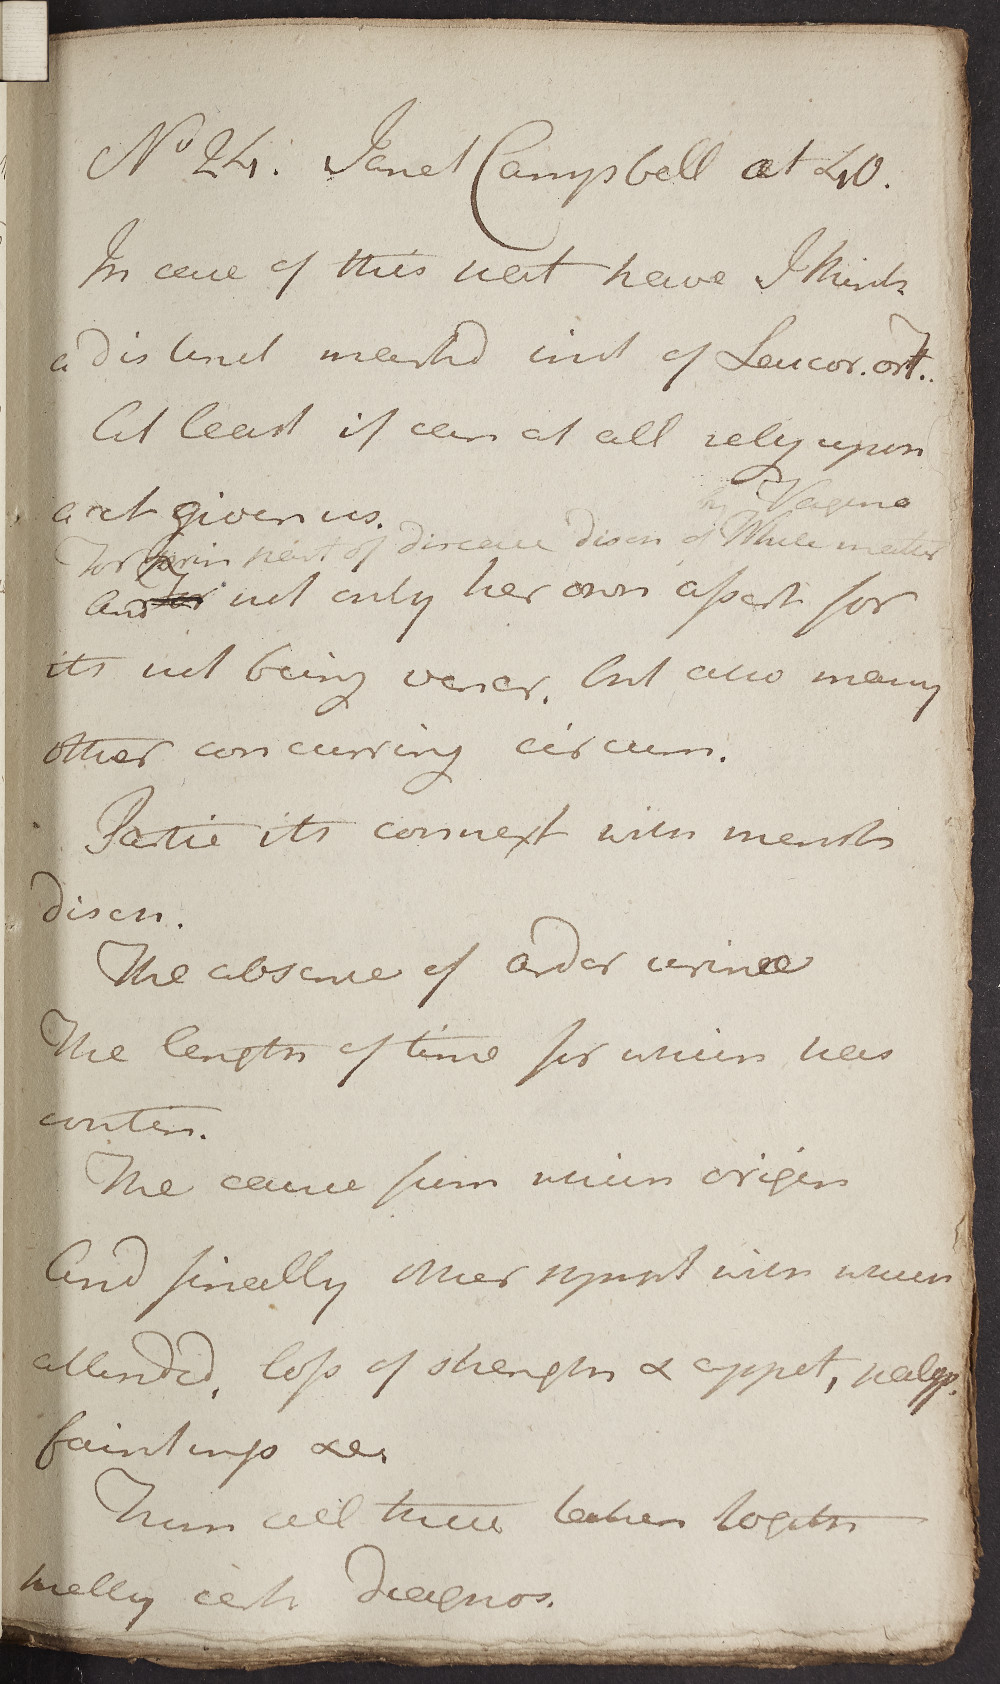 No 24. Janet Campbell æt 40.
In case of this pat have I think
a distinct markd inst of Leucor. ort..
At least if can at all rely upon
acct given us.
by Vagina
For prin part of disease disch of White matter
And for not only her own assert for
its not being vener. but also many
other concurring circum.
Partic its connext with menstr
disch.
The absence of ardor urinae
The length of time for which has
contin.
The cause from which origin
And finally other sympt with which
attended, loss of strength & appet, palp.
faintings &c.
From all these taken togethr
pretty certn diagnos.